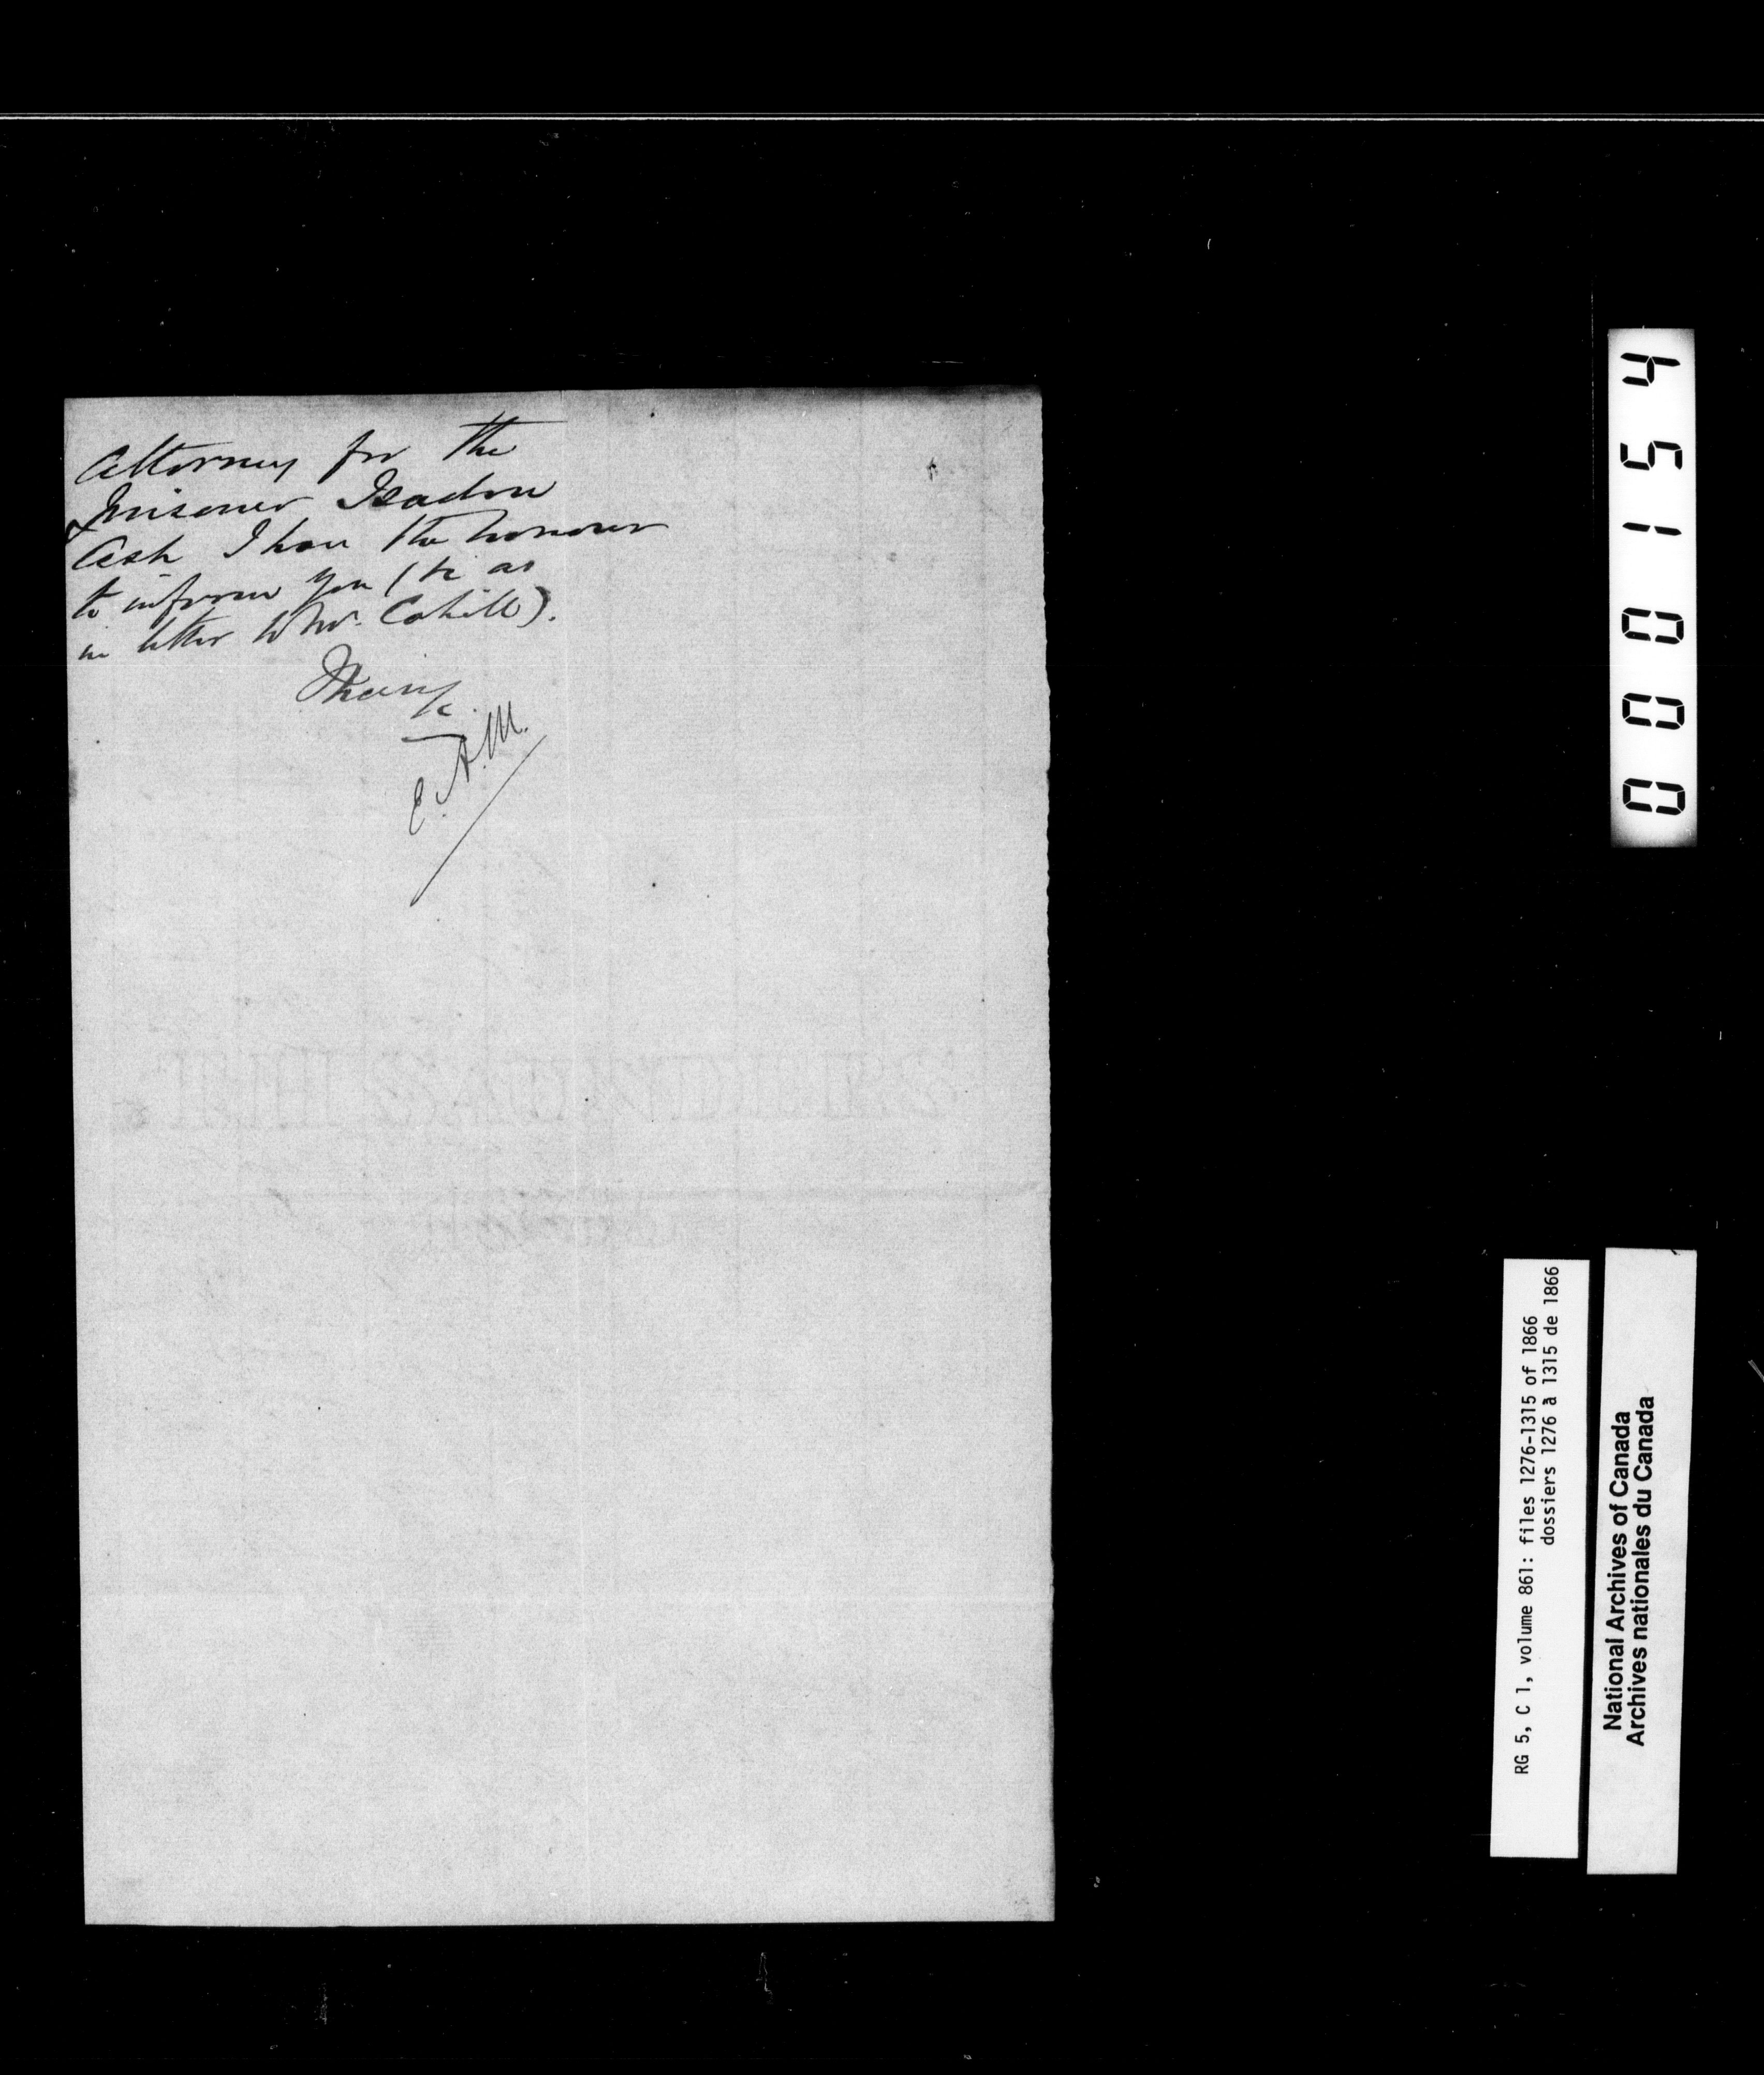 Attorney for the
Prisoner Isadore
Cash I have the honour
to inform you (&c as
in letter to Mr. Cahill).
I have &c
E.A.M.
000154
RG 5, C 1, volume 861: files 1276-1315 of 1866
dossiers 1276 à 1315 de 1866
National Archives of Canada
Archives nationales du Canada